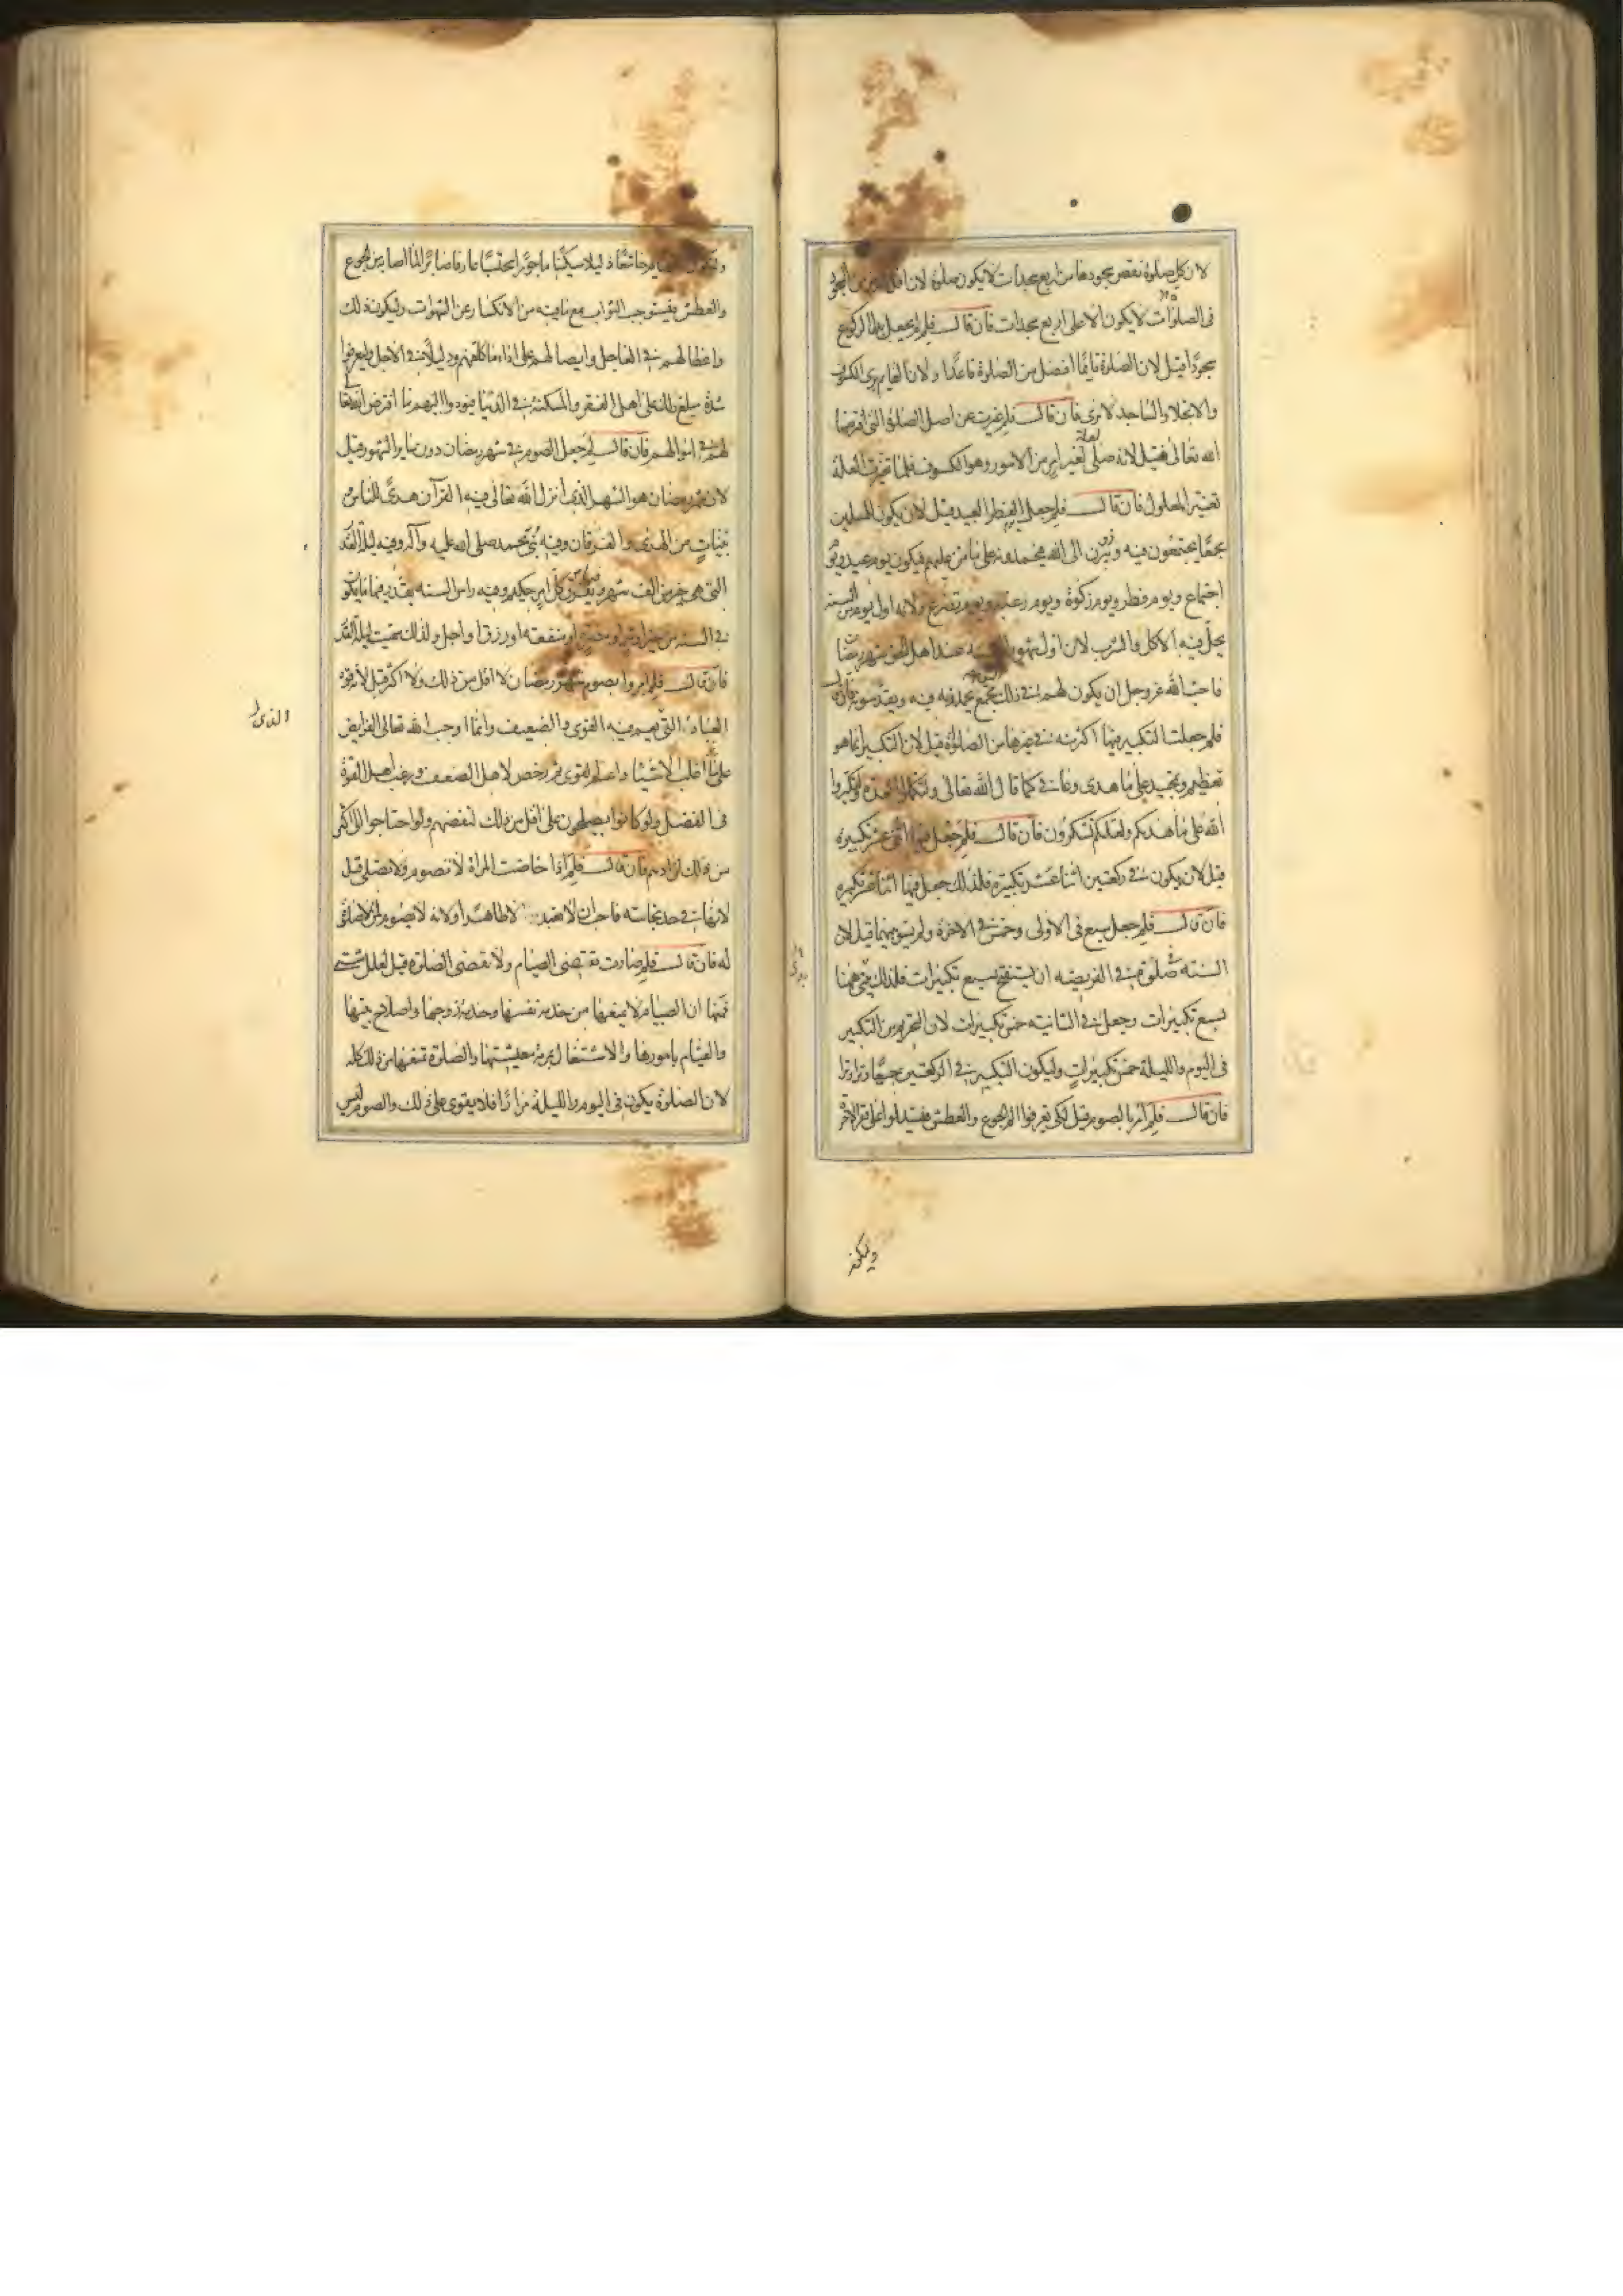 لان كل صلوة نقص سجودها من اربع سجدات لا يكون صلوة لان اقل الفرض من السجود
فى الصلوات لا يكون الا على اربع سجدات فان قال فلم لم يجعل بدل الركوع
سجودا قيل لان الصلوة قايما افضل من الصلوة قاعدا ولان القايم يرى الكسوف
والانجلاء والساجد لا يرى فان قال فلم غيرت عن اصل الصلوة التى افترضها
الله تعالى فقيل لانه صلى لعلة تغير امر من الامور وهو الكسوف فلما تغيرت العلة
تغير المعلول فان قال فلم جعل الفطر العيد قيل لان يكون للمسلمين
مجمعا يجتمعون فيه ويبرزون الى الله فيحمدونه على ما من عليهم فيكون يوم عيد ويوم
اجتماع ويوم فطر ويوم زكوة ويوم رغبة ويوم تضرع ولانه اول يوم من السنة
يحل فيه الاكل والشرب لان اول شهور السنة عند اهل الحق شهر رمضان
فاحب الله عز وجل ان يكون لهم فى ذلك اليوم مجمع يحمدونه فيه ويقدسونه فان قال
فلم جعلت التكبير فيها اكثر منه فى غيرها من الصلوة قيل لان التكبير انما هو
تعظيم وتمجيد على ما هدى وعافى كما قال الله تعالى ولتكملوا العدة ولتكبروا
الله على ما هديكم ولعلكم تشكرون فان قال فلم جعل فيها اثنى عشر تكبيرة
قيل لان يكون فى ركعتين اثنا عشر تكبيرة فلذلك جعل فيها اثنا عشر تكبيرة
فان قال فلم جعل سبع فى الاولى وخمس فى الاخرة ولم يسو بينهما قيل لان
السنة فى صلوة الفريضة ان يستفتح بسبع تكبيرات فلذلك بدئ ههنا
بسبع تكبيرات وجعل فى الثانية خمس تكبيرات لان التحريم من التكبير
فى اليوم والليلة خمس تكبيرات وليكون التكبير فى الركعتين جميعا وترا وترا
فان قال فلم امر بالصوم قيل لكى يعرفوا الم الجوع والعطش فيستدلوا على فقر الاخرة
وليكون
وليكون الصايم خاشعا ذليلا مستكينا ماجورا محتسبا عارفا صابرا لما اصابه من الجوع
والعطش فيستوجب الثواب مع ما فيه من الانكسار عن الشهوات وليكون ذلك
واعظا لهم فى العاجل ورايضا لهم على اداء ما كلفهم ودليلا فى الاجل وليعرفوا
شدة مبلغ ذلك على اهل الفقر والمسكنة فى الدنيا فيودوا اليهم ما افترض الله تعالى
لهم فى اموالهم فان قال لم جعل الصوم فى شهر رمضان دون ساير الشهور قيل
لان شهر رمضان هو الشهر الذى انزل الله تعالى فيه القرآن هدى للناس
بينات من الهدى والفرقان وفيه نبئ محمد صلى الله عليه وآله وفيه ليلة القدر
التى هى خير من الف شهر وفيها يفرق كل امر حكيم وفيه راس السنة يقدر فيها ما يكون
فى السنة من خير او شر او مضرة او منفعة او رزق او اجل ولذلك سميت ليلة القدر
فان قال فلم امروا بصوم شهر رمضان لا اقل من ذلك ولا اكثر قيل لانه قوة
العباد التى يعم فيه القوى والضعيف وانما اوجب الله تعالى الفرايض
الذى
على اغلب الاشياء واعم القوى ثم رخص لاهل الضعف ورغب اهل القوة
فى الفضل ولو كانوا يصلحون على اقل من ذلك لنقصهم ولو احتاجوا الى اكثر
من ذلك لزادهم فان قال فلم اذا حاضت المراة لا تصوم ولا تصلى قيل
لانها فى حد نجاسة فاحب ان لا تعبد الا طاهرا ولانه لا صوم لمن لا صلوة
له فان قال فلم صارت تقضى الصيام ولا تقضى الصلوة قيل لعلل شتى
فمنها ان الصيام لا يمنعها من خدمة نفسها وخدمة زوجها واصلاح بيتها
والقيام بامورها والاشتغال بمرمة معيشتها والصلوة تمنعها من ذلك كله
لان الصلوة يكون فى اليوم والليلة مرارا فلا يقوى على ذلك والصوم ليس